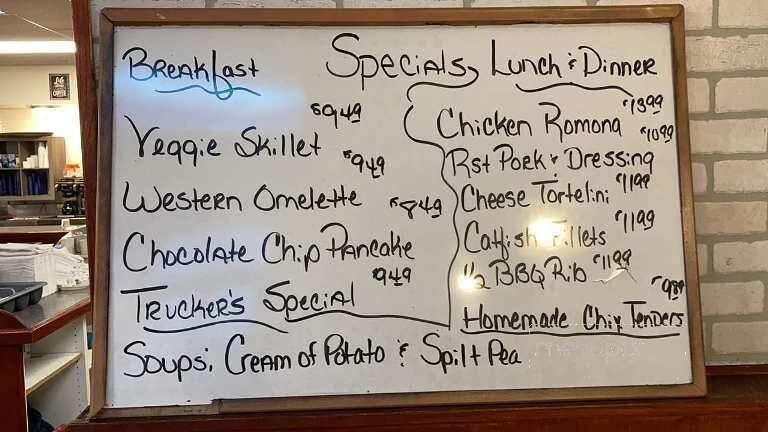 Specials
Breakfast
$9.49
Veggie Skillet
$9.49
Western Omelette
$8.49
Chocolate Chip Pancake
9.49
Trucker's Special
Lunch & Dinner
$13.99
Chicken Romona
$10.99
Rst Pork & Dressing
$11.99
Cheese Tortelini
$11.99
Catfish Fillets
$11.99
1/2 BBQ Rib
Homemade Chix Tenders
Soups: Cream of Potato & Spilt Pea